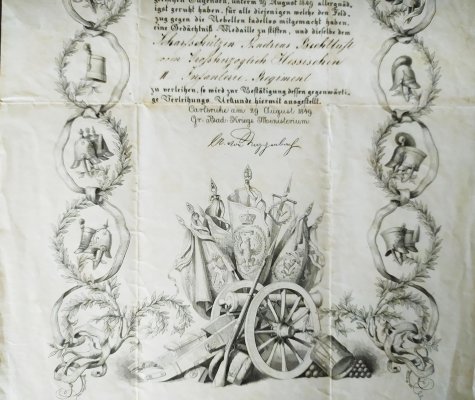 gethigen Tugenden, unterm 29 August 1849 allergnäd-
igst geruht haben, für alle diejenigen welche den Feld-
zug gegen die Rebellen tadellos mitgemacht haben,
eine Gedächtniß-Medaille zu stiften, und dieselbe dem
Scharfschützen Andreas
vom Großherzoglich Hessischen
II Infanterie Regiment
zu verleihen, so wird zur Bestätigung dessen gegenwärti-
ge Verleihungs Urkunde hiermit ausgestellt.
Carlsruhe am 29 August 1849
Gr. Bad. Kriegs Ministerium.